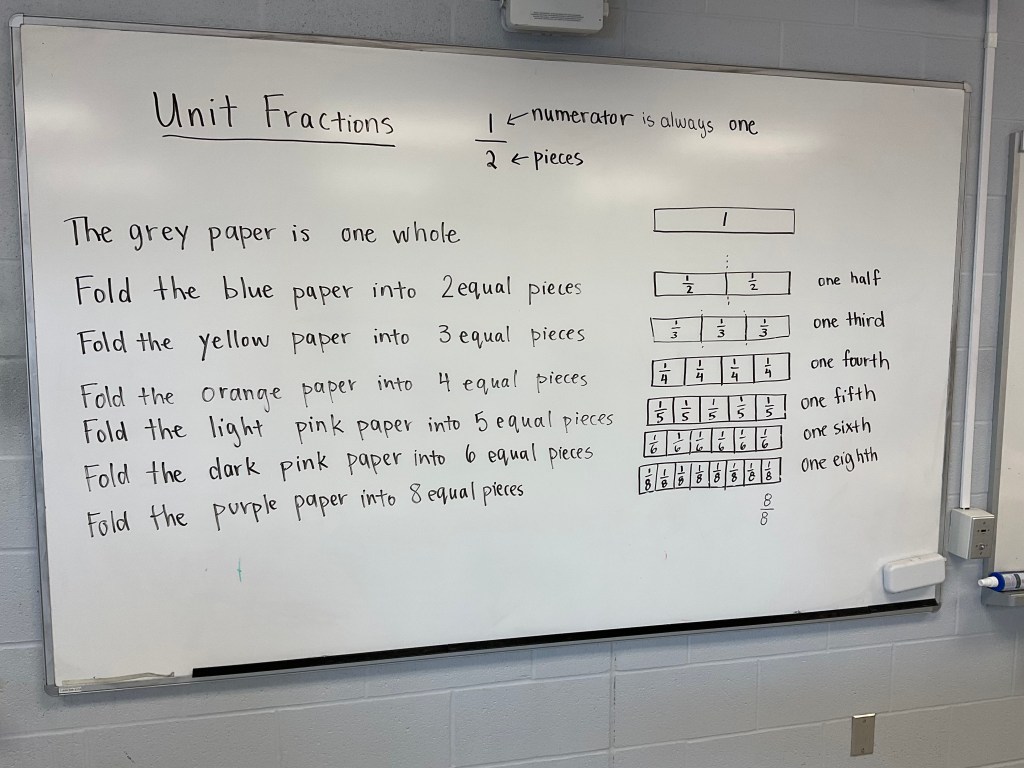 Unit Fractions
1 ← numerator is always one
2 ← pieces
The grey paper is one whole
1
Fold the blue paper into 2 equal pieces
1/2 1/2 one half
Fold the yellow paper into 3 equal pieces
1/3 1/3 1/3 one third
Fold the orange paper into 4 equal pieces
1/4 1/4 1/4 1/4 one fourth
Fold the light pink paper into 5 equal pieces
1/5 1/5 1/5 1/5 1/5 one fifth
Fold the dark pink paper into 6 equal pieces
1/6 1/6 1/6 1/6 1/6 1/6 one sixth
Fold the purple paper into 8 equal pieces
1/8 1/8 1/8 1/8 1/8 1/8 1/8 1/8 one eighth
8/8